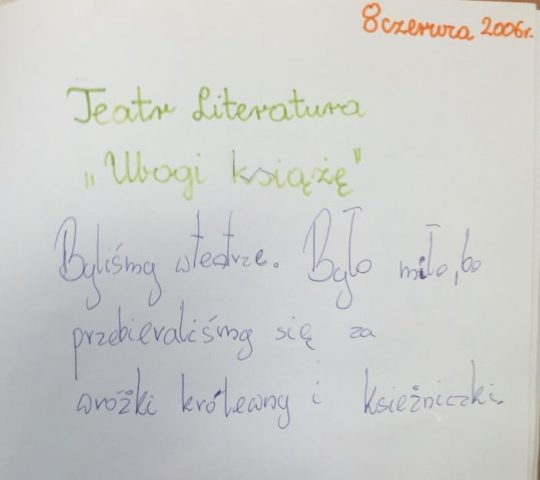 8 czerwca 2006r.
Teatr Literatura
„Ubogi książę"
Byliśmy wteatrze. Było miło, bo
przebieraliśmy się za
wróżki królewny i księżniczki.